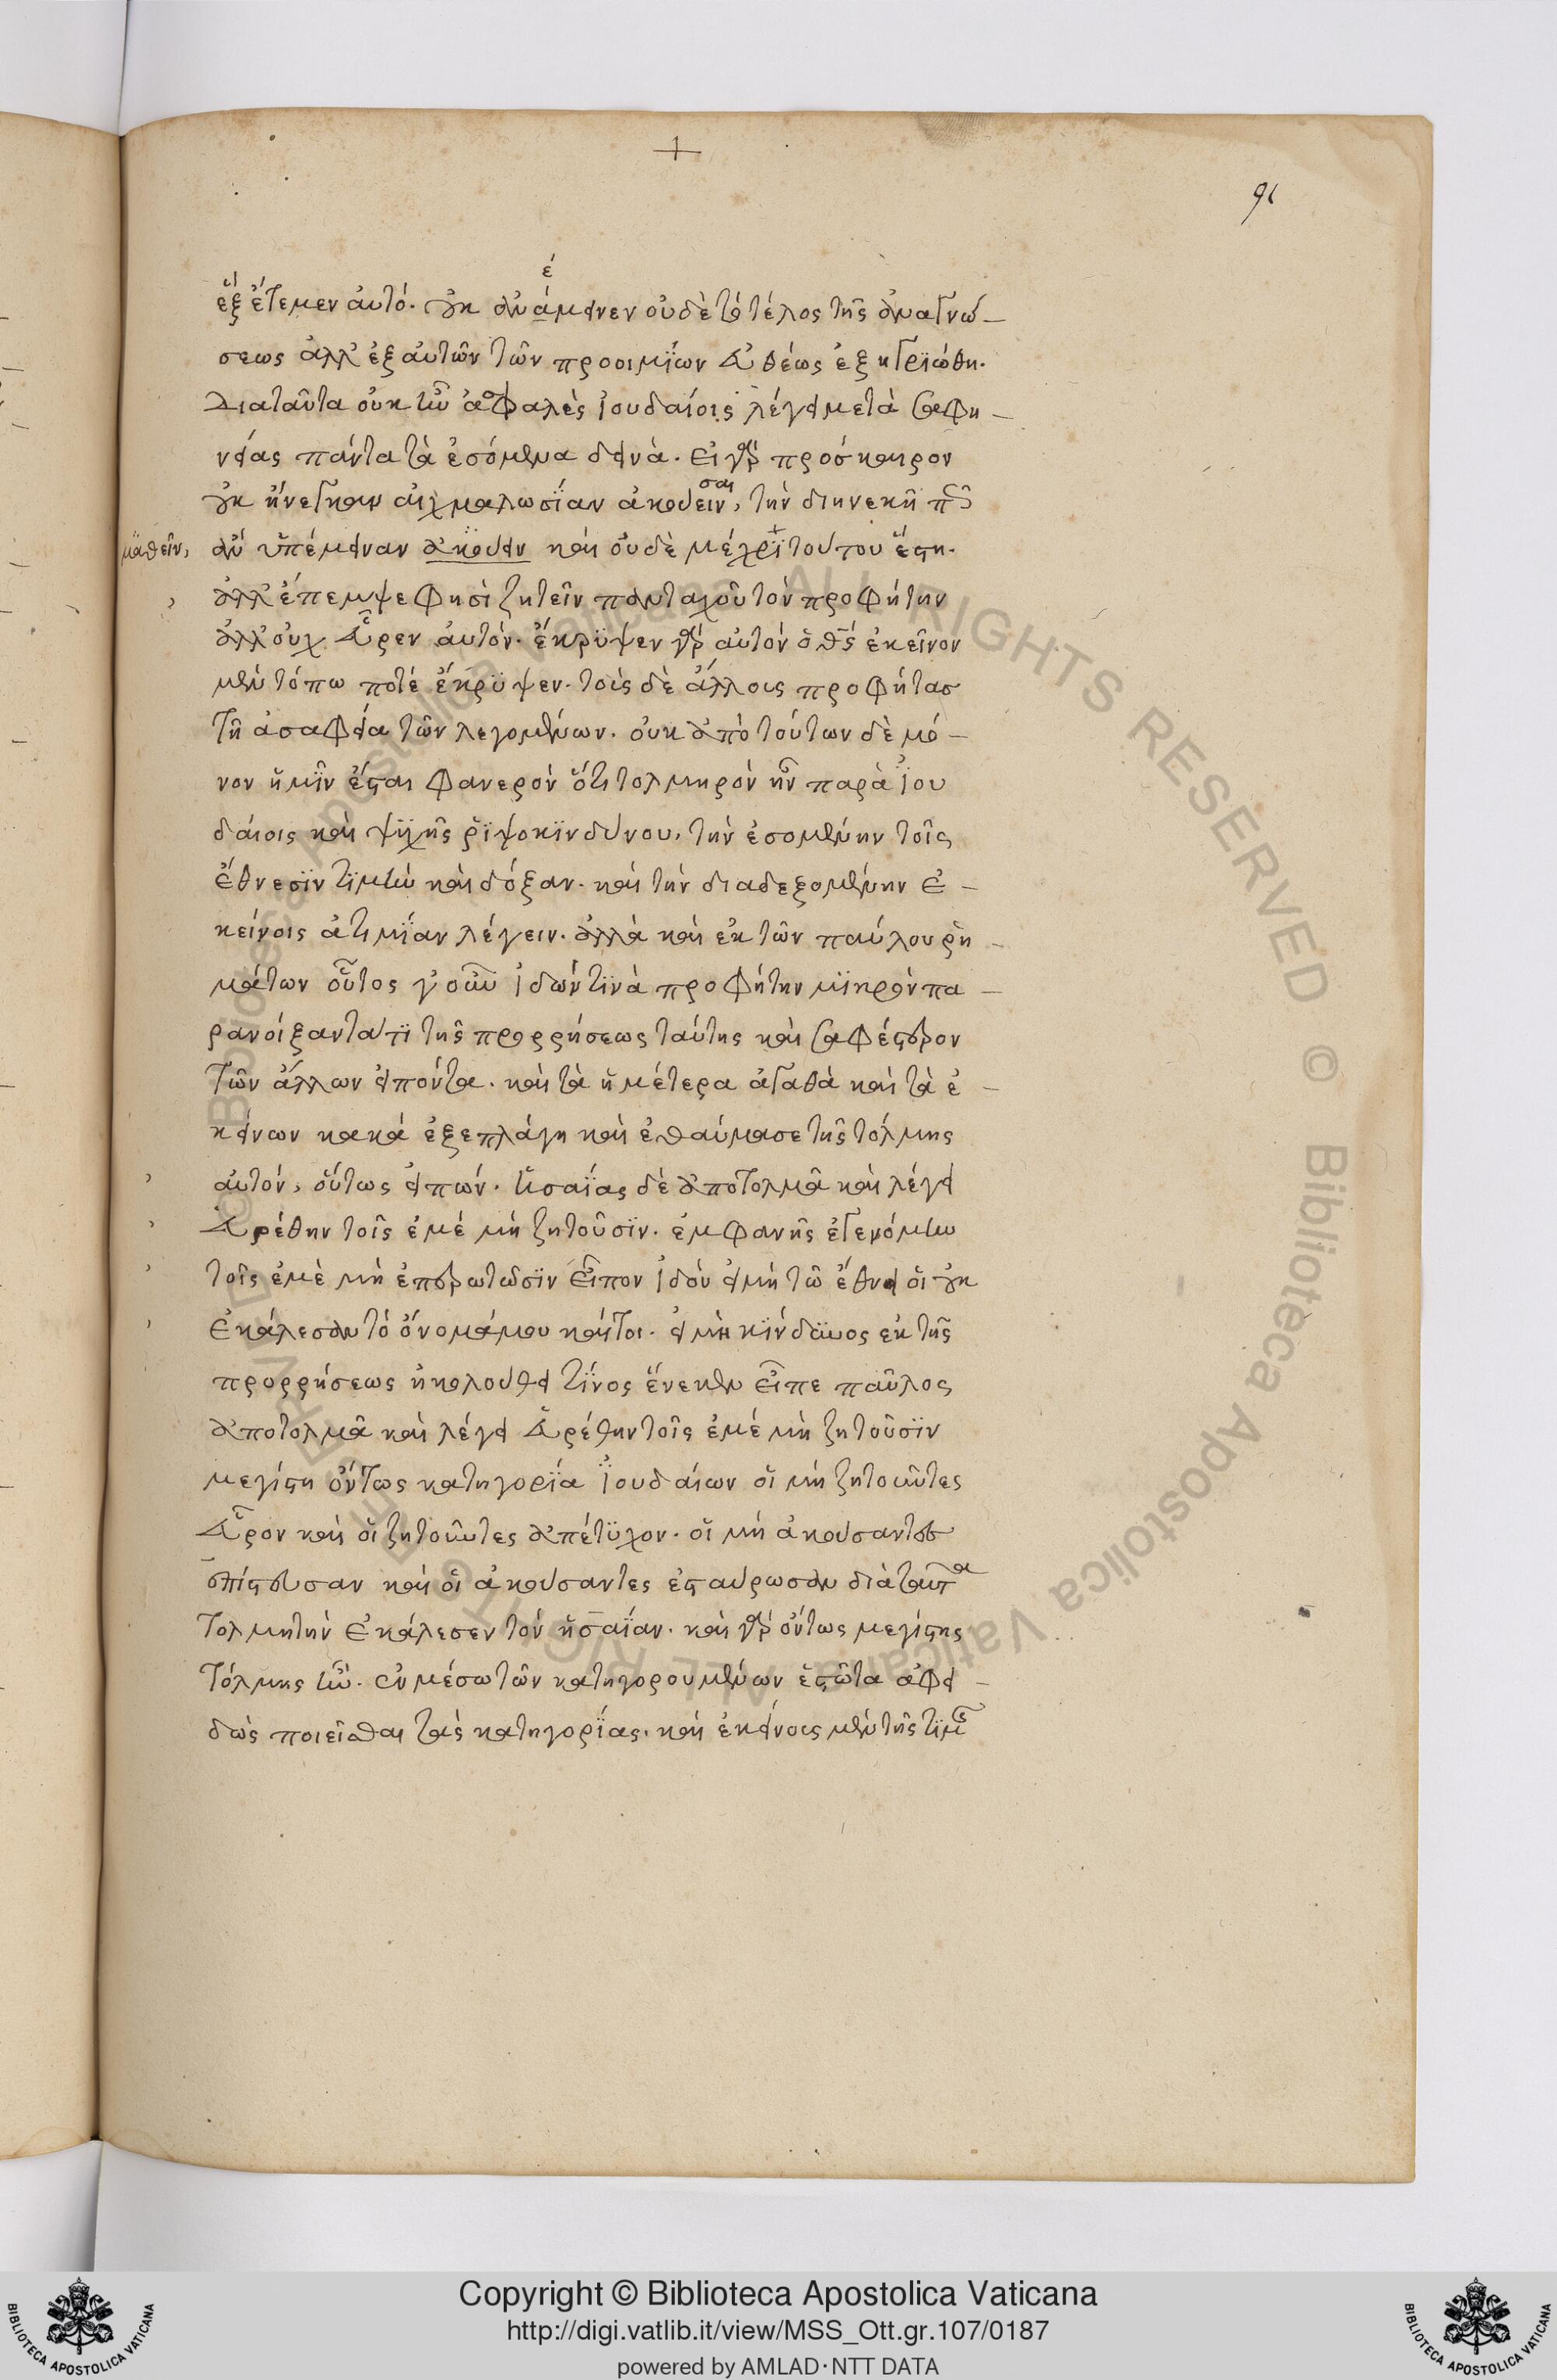 91
ἐξέτεμεν αὐτό. οὐκ ἀνάμεινεν οὐδὲ τὸ τέλος τῆς ἀναγνώ-
έ
σεως ἀλλ' ἐξ αὐτῶν τῶν προοιμίων εὐθέως ἐξηγριώθη.
Διαταῦτα οὐκ ἦν ἀσφαλὲς ἰουδαίοις λέγει μετὰ σαφη-
νείας πάντα τὰ ἐσόμενα δεινὰ. εἰ γὰρ πρόσκαιρον
οὐκ ἤνεγκαν αἰχμαλωσίαν ἀκούειν, τὴν διηνεκῆ πῶς
σαι
ἂν ὑπέμειναν ἀκούειν καὶ οὐδὲ μέχρι τούτου ἔστη.
μαθεῖν,
ἀλλ' ἔπεμψε φησὶ ζητεῖν πανταχοῦ τὸν προφήτην
ἀλλ' οὐχ εὗρεν αὐτόν. ἔκρυψεν γὰρ αὐτόν ὁ θς ἐκεῖνον
μὲν τόπω ποτέ ἔκρυψεν. τοῖς δὲ ἄλλοις προφήτας
τῇ ἀσαφεία τῶν λεγομένων. οὐκ ἀπὸ τούτων δὲ μό-
νον ἡμῖν ἔσται φανερὸν ὅτι τολμηρὸν ἦν παρὰ ἰου
δαίοις καὶ ψυχῆς ῥιψοκινδύνου, τὴν ἐσομένην τοῖς
ἔθνεσιν τιμὴν καὶ δόξαν. καὶ τὴν διαδεξομένην ἐ-
κείνοις ἀτιμίαν λέγειν. ἀλλὰ καὶ ἐκ τῶν παύλου ῥη-
μάτων οὗτος γοῦν ἰδών τινὰ προφήτην μικρὸν πα-
ρανοίξαντα τι τῆς προρρήσεως ταύτης καὶ σαφέστερον
τῶν ἄλλων εἰπόντα. καὶ τὰ ἡμέτερα ἀγαθὰ καὶ τὰ ἐ-
κείνων κακά ἐξεπλάγη καὶ ἐθαύμασε τῆς τόλμης
αὐτόν, οὕτως εἰπών. ἡσαίας δὲ ἀποτολμᾶ καὶ λέγει
εὑρέθην τοῖς ἐμέ μὴ ζητοῦσιν. ἐμφανὴς ἐγενόμην
τοῖς ἐμὲ μὴ ἐπερωτῶσιν εἶπον ἰδοὺ εἰμὴ τῶ ἔθνει οἳ οὐκ
ἐκάλεσαν τὸ ὄνομά μου καίτοι. εἰ μὴ κίνδυνος ἐκ τῆς
προρρήσεως ἠκολούθει τίνος ἕνεκεν εἶπε παῦλος
ἀποτολμᾶ καὶ λέγει εὑρέθην τοῖς ἐμέ μὴ ζητοῦσιν
μεγίστη ὄντως κατηγορία ἰουδαίων οἳ μὴ ζητοῦντες
εὗρον καὶ οἳ ζητοῦντες ἀπέτυχον. οἳ μὴ ἀκούσαντες
ἐπίστευσαν καὶ οἳ ἀκούσαντες ἐσταύρωσαν διὰ ταῦτα
τολμητὴν ἐκάλεσεν τὸν ἡσαίαν. καὶ γὰρ ὄντως μεγίστης
τόλμης ἦν. ἐν μέσω τῶν κατηγορουμένων ἑστῶτα ἀφει-
δῶς ποιεῖσθαι τὰς κατηγορίας, καὶ ἐκείνοις μὲν τῆς τιμ
Copyright © Biblioteca Apostolica Vaticana
http://digi.vatlib.it/view/MSS_Ott.gr.107/0187
powered by AMLAD·NTT DATA